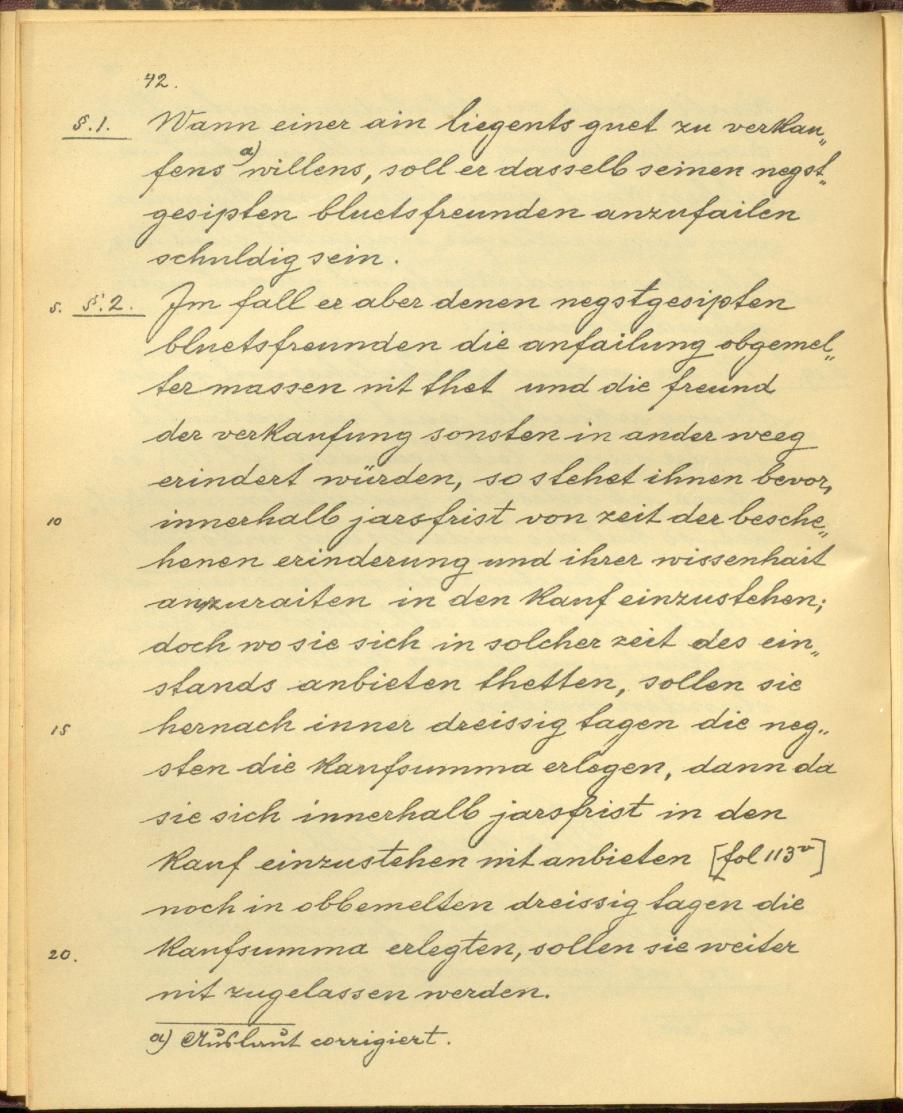 42.
§.1. Wann einer ain liegents guet zu verkau„
fens a) willens, soll er dasselb seinen negst„
gesipten bluetsfreunden anzufailen
schuldig sein.
5. §.2. Im fall er aber denen negstgesipten
bluetsfreunden die anfailung obgemel„
ter massen nit thet und die freund
der verkaufung sonsten in ander weeg
erindert würden, so stehet ihnen bevor,
10 innerhalb jarsfrist von zeit der besche„
henen erinderung und ihrer wissenhait
anzuraiten in den kauf einzustehen;
doch wo sie sich in solcher zeit des ein„
stands anbieten thetten, sollen sie
15 hernach inner dreissig tagen die neg„
sten die kaufsumma erlegen, dann da
sie sich innerhalb jarsfrist in den
kauf einzustehen nit anbieten [fol 113v]
noch in obbemelten dreissig tagen die
20. kaufsumma erlegten, sollen sie weiter
nit zugelassen werden.
a) Auslaut corrigiert.